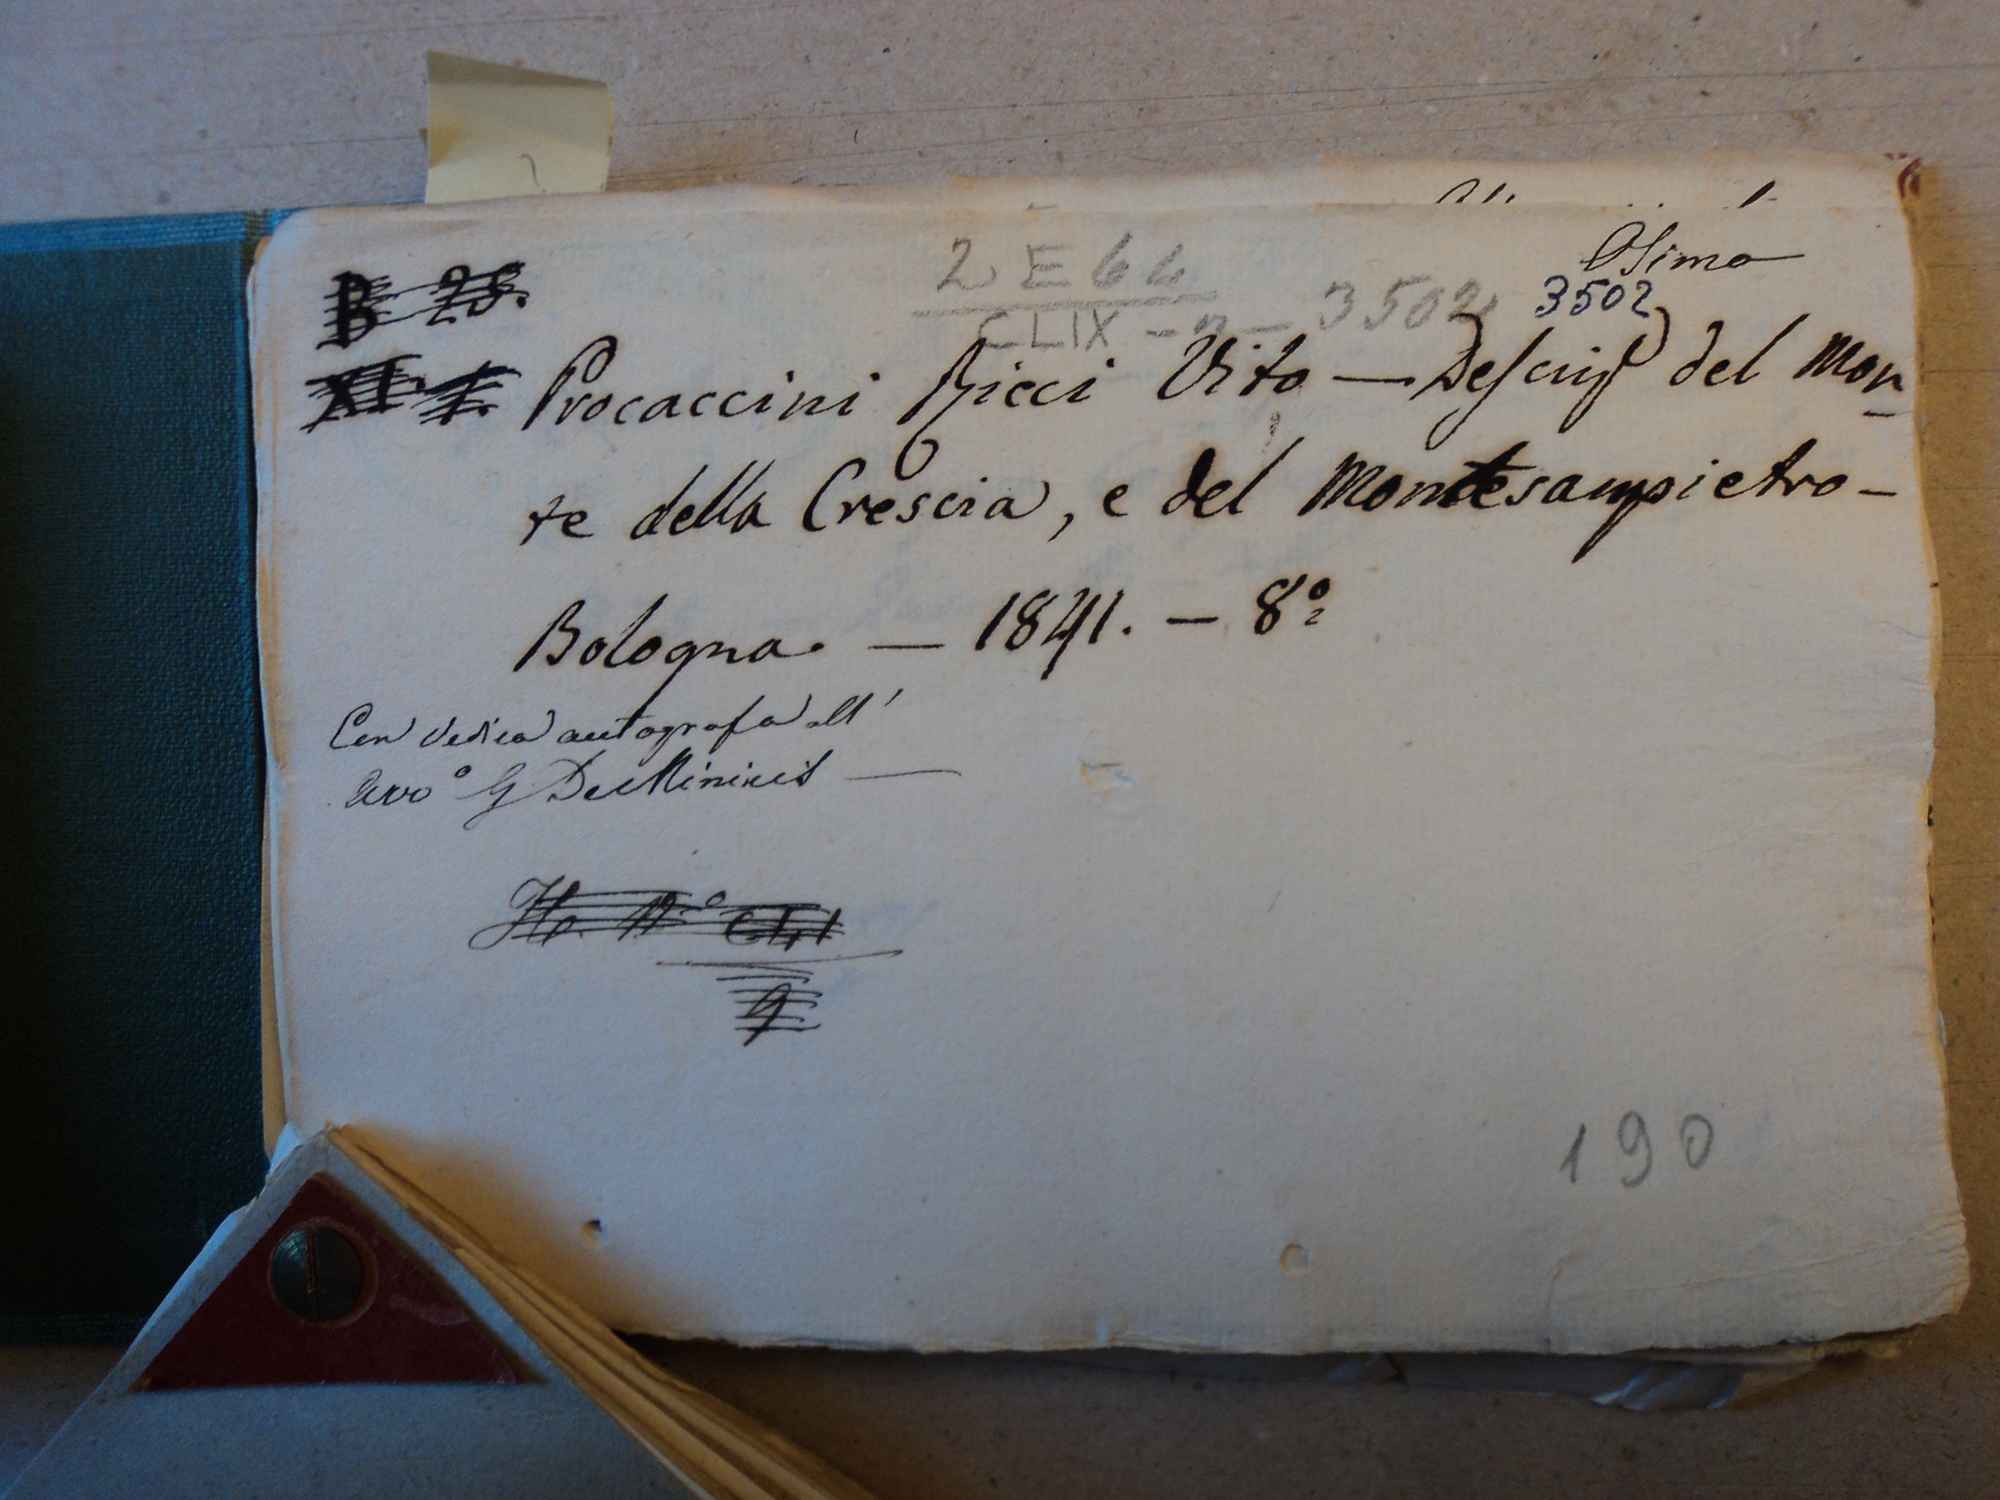 Osimo
B 25.
2 E 64
CLIX - 7 - 3502
3502
XI. 1. Procaccini Ricci Vito — Descriz del Mon
te della Crescia, e del Montesampietro -
Bologna. — 1841. — 8º
Con dedica autografa all'
Avvº G De Minicis —
190